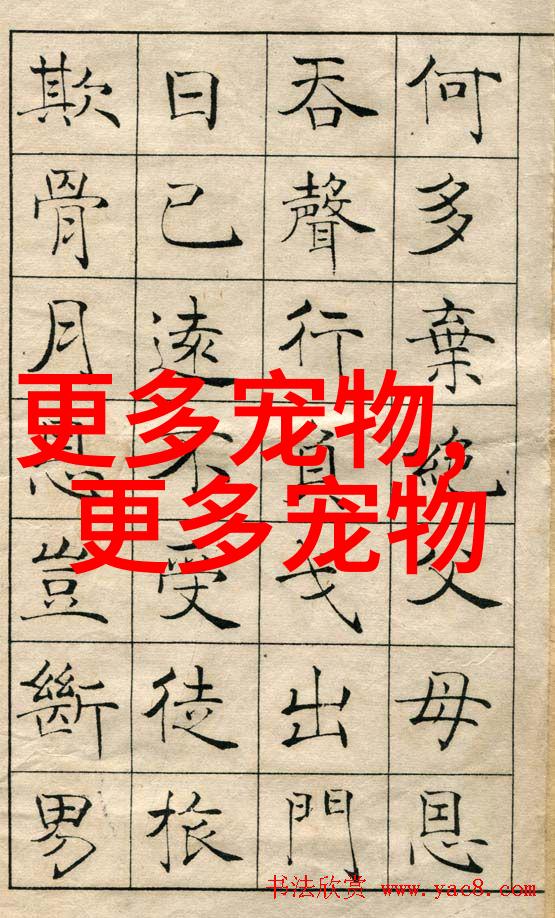 何多棄絶父母恩
吞聲行負戈出門
日已遠不受徒旅
欺骨月恩豈斷男
更多宠物,
更多宠物
书法欣赏 www.yac8.com